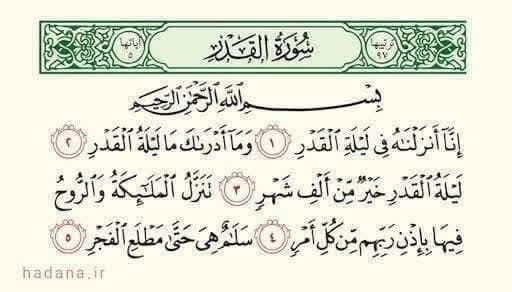 ترتيبها ٩٧ سُورَةُ القَدْرِ آياتها ٥
بِسْمِ اللَّهِ الرَّحْمَٰنِ الرَّحِيمِ
إِنَّا أَنزَلْنَاهُ فِي لَيْلَةِ الْقَدْرِ ١ وَمَا أَدْرَاكَ مَا لَيْلَةُ الْقَدْرِ ٢
لَيْلَةُ الْقَدْرِ خَيْرٌ مِّنْ أَلْفِ شَهْرٍ ٣ تَنَزَّلُ الْمَلَائِكَةُ وَالرُّوحُ
فِيهَا بِإِذْنِ رَبِّهِم مِّن كُلِّ أَمْرٍ ٤ سَلَامٌ هِيَ حَتَّىٰ مَطْلَعِ الْفَجْرِ ٥
hadana.ir